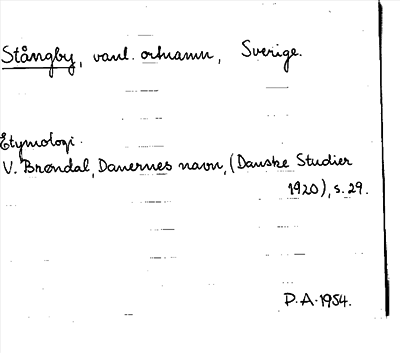 Stångby, vanl. ortnamn, Sverige.
Etymologi.
V. Brøndal, Danernes navn, (Danske Studier
1920), s. 29.
P.A. 1954.